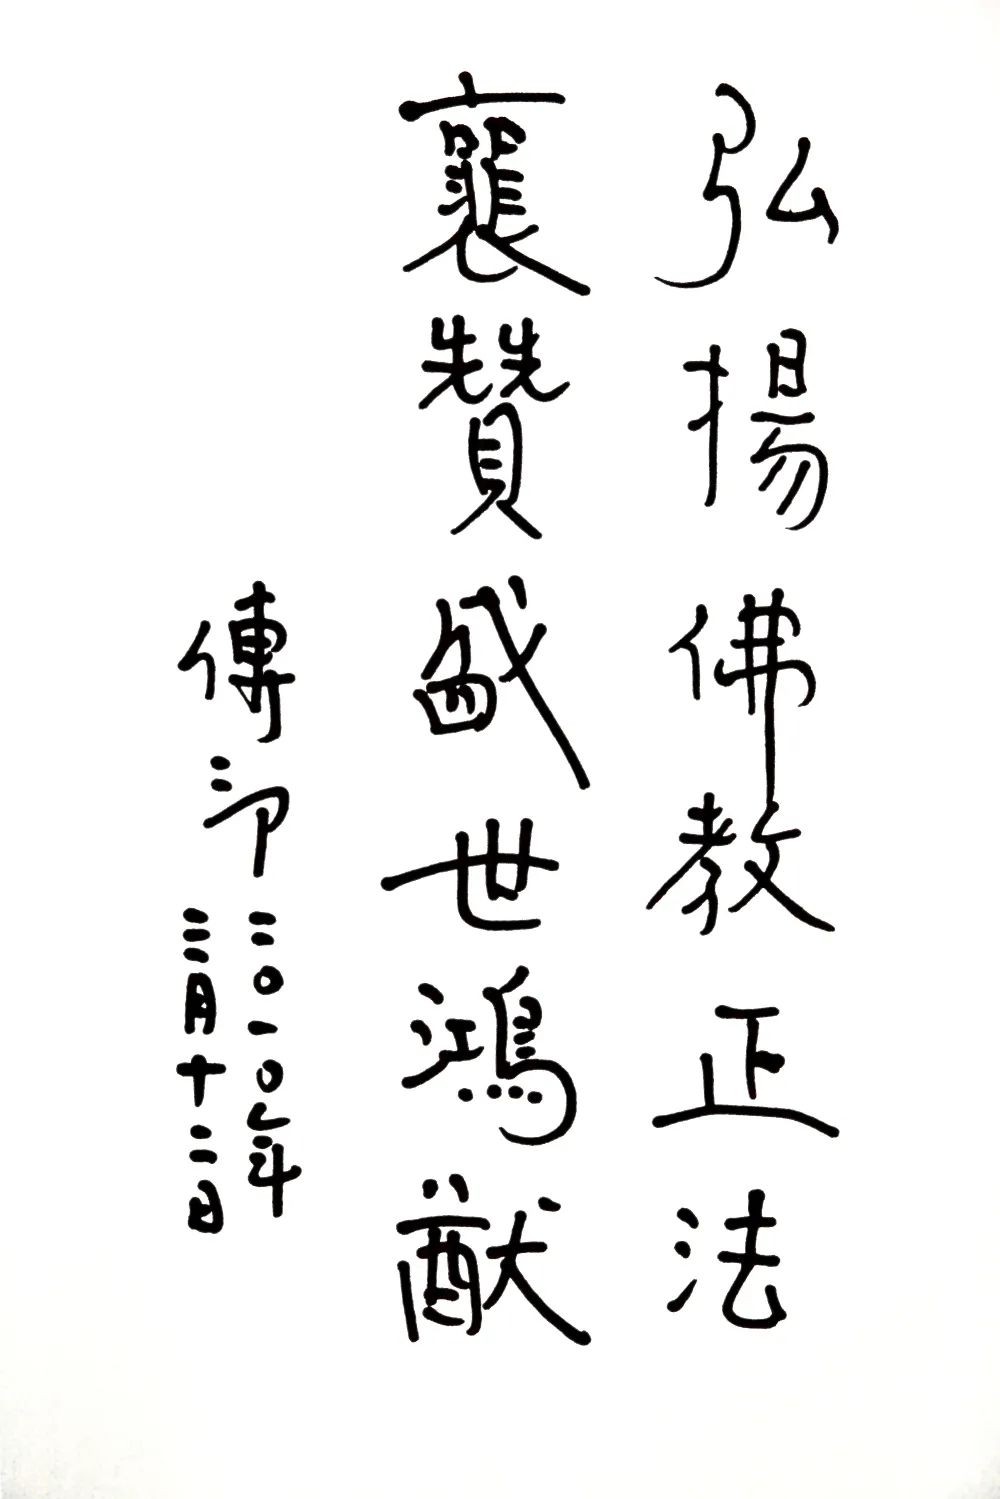 弘揚佛教正法
襄贊盛世鴻猷
傳印
二〇一〇年
三月十二日